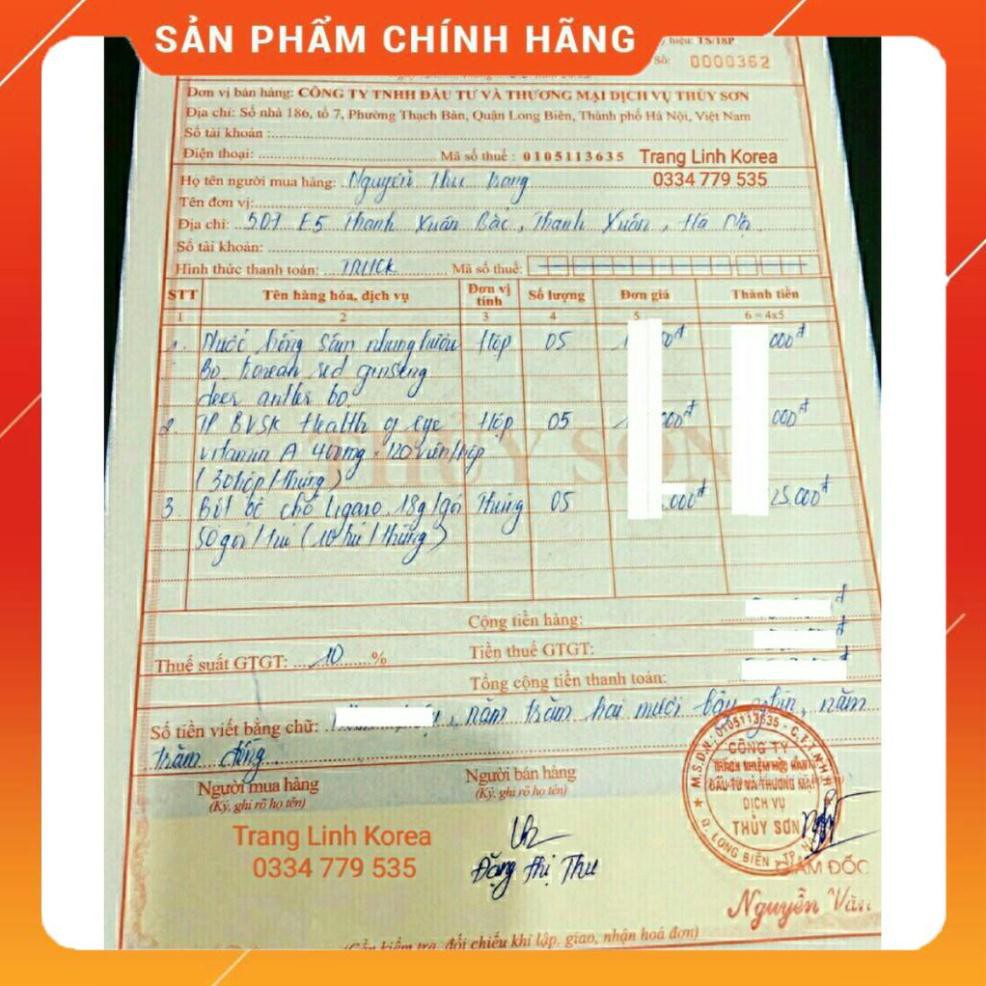 SẢN PHẨM CHÍNH HÃNG
hiệu: TS/18P
Số: 0000362
Đơn vị bán hàng: CÔNG TY TNHH ĐẦU TƯ VÀ THƯƠNG MẠI DỊCH VỤ THỦY SƠN
Địa chỉ: Số nhà 186, tổ 7, Phường Thạch Bàn, Quận Long Biên, Thành phố Hà Nội, Việt Nam
Số tài khoản:
Điện thoại: Mã số thuế: 0105113635 Trang Linh Korea
0334 779 535
Họ tên người mua hàng: Nguyễn Thu Trang
Tên đơn vị:
Địa chỉ: 507 E5 Thanh Xuân Bắc, Thanh Xuân, Hà Nội
Số tài khoản:
Hình thức thanh toán: TM/CK Mã số thuế:
STT Tên hàng hóa, dịch vụ Đơn vị tính Số lượng Đơn giá Thành tiền
1 2 3 4 5 6 = 4x5
1. Nước hồng sâm nhung hươu Hộp 05 000đ
Bo. Korean red ginseng
deer antler bo.
2. TP BVSK Health of eye Hộp 05 000đ 000đ
vitamin A 400mg * 120 viên/hộp
(30 hộp/thùng)
3 Bột óc chó Ligaro 18g/gói Thùng 05 .000đ 25.000đ
50 gói/túi (10 túi/thùng)
THỦY SƠN
Cộng tiền hàng: đ
Thuế suất GTGT: 10 % Tiền thuế GTGT: đ
Tổng cộng tiền thanh toán: đ
Số tiền viết bằng chữ: , năm trăm hai mươi bảy nghìn, năm
trăm đồng.
Người mua hàng Người bán hàng
(Ký, ghi rõ họ tên) (Ký, ghi rõ họ tên)
M.S.D.N: 0105113635 - C.T.T.N.H.H
CÔNG TY
TRÁCH NHIỆM HỮU HẠN
ĐẦU TƯ VÀ THƯƠNG MẠI
DỊCH VỤ
THỦY SƠN
Q. LONG BIÊN
Trang Linh Korea
0334 779 535
Đặng Thị Thu
GIÁM ĐỐC
Nguyễn Văn
(Cần kiểm tra, đối chiếu khi lập, giao, nhận hoá đơn)